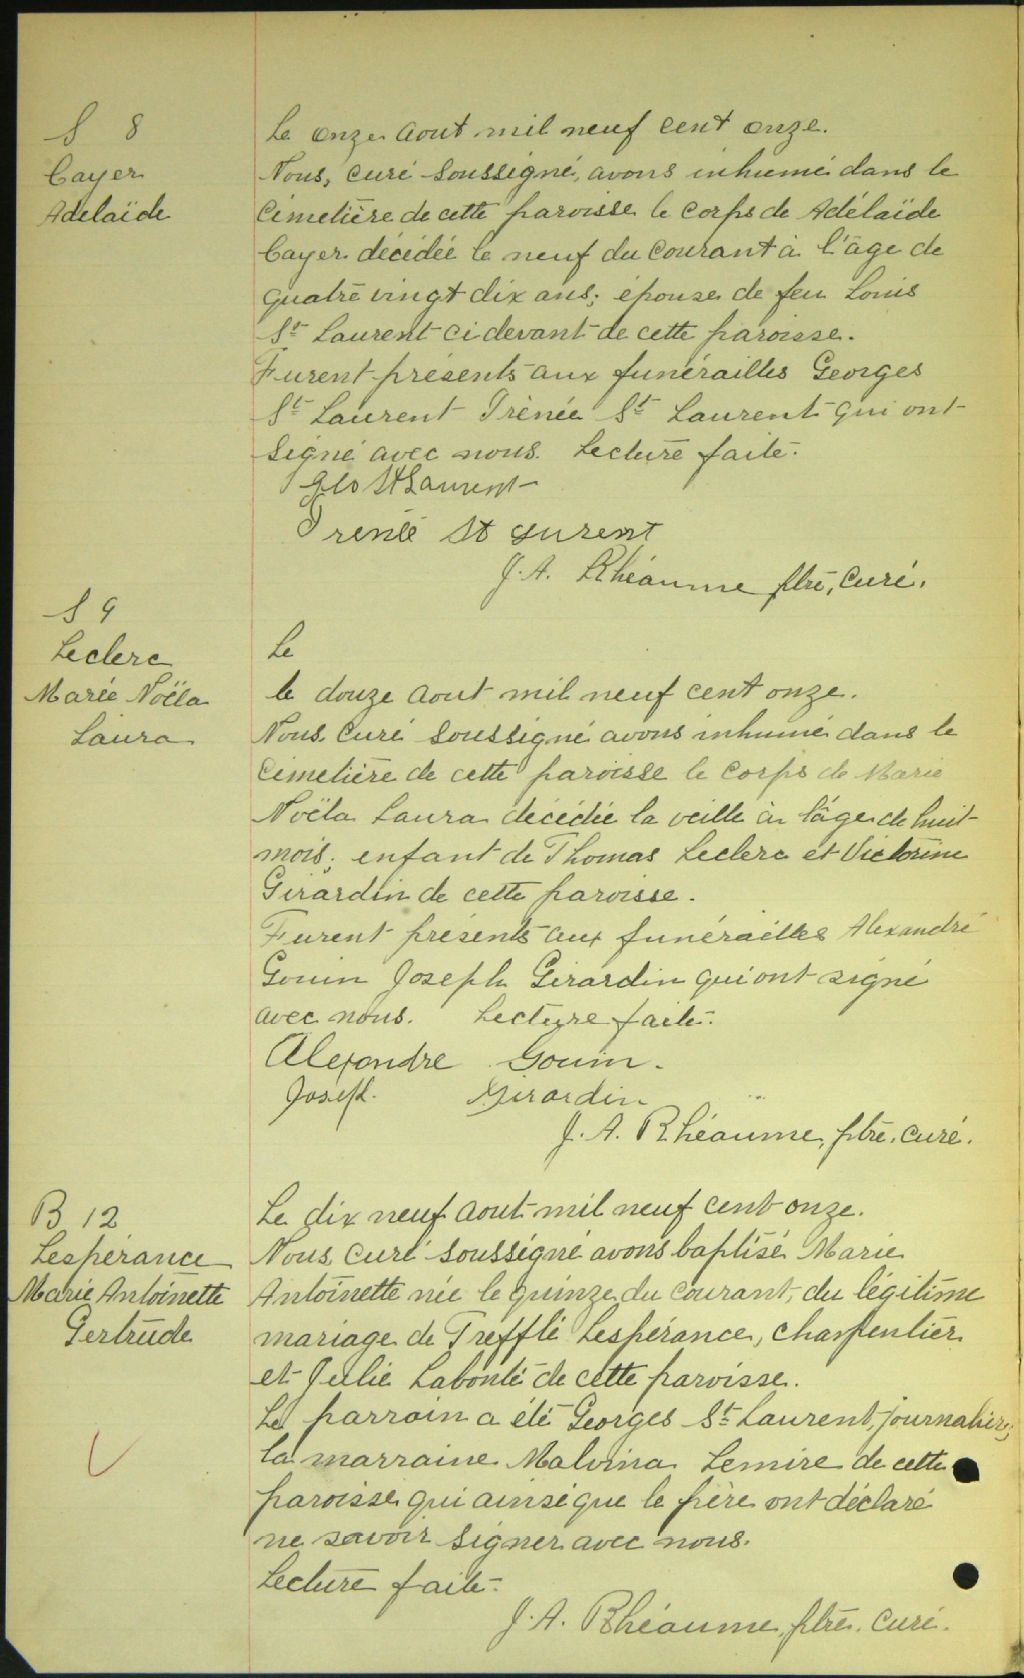 S 8
Cayer
Adelaïde
Le onze aout mil neuf cent onze.
Nous, curé soussigné, avons inhumé dans le
cimetière de cette paroisse le corps de Adélaïde
Cayer décédée le neuf du courant à l'âge de
quatre vingt dix ans; épouse de feu Louis
St Laurent ci devant de cette paroisse.
Furent présents aux funérailles Georges
St Laurent Irènée St Laurent qui ont
signé avec nous. Lecture faite.
Geo St Laurent
Irenée St Lurent
J. A. Rhéaume ptre, curé.
S 9
Leclerc
Marie Noëla
Laura
Le
le douze aout mil neuf cent onze.
Nous, curé soussigné avons inhumé dans le
cimetière de cette paroisse le corps de Marie
Noëla Laura décédée la veille à l'âge de huit
mois; enfant de Thomas Leclerc et Victorine
Girardin de cette paroisse.
Furent présents aux funérailles Alexandre
Gouin Joseph Girardin qui ont signé
avec nous. Lecture faite.
Alexandre Gouin.
Joseph Girardin
J. A. Rhéaume, ptre, curé.
B 12
Lespérance
Marie Antoinette
Gertrude
Le dix neuf aout mil neuf cent onze.
Nous, curé soussigné avons baptisé Marie
Antoinette née le quinze du courant, du légitime
mariage de Trefflé Lespérance, charpentier
et Julie Labonté de cette paroisse.
Le parrain a été Georges St Laurent, journalier,
la marraine Malvina Lemire de cette
paroisse qui ainsi que le père ont déclaré
ne savoir signer avec nous.
Lecture faite.
J. A. Rhéaume, ptre, curé.